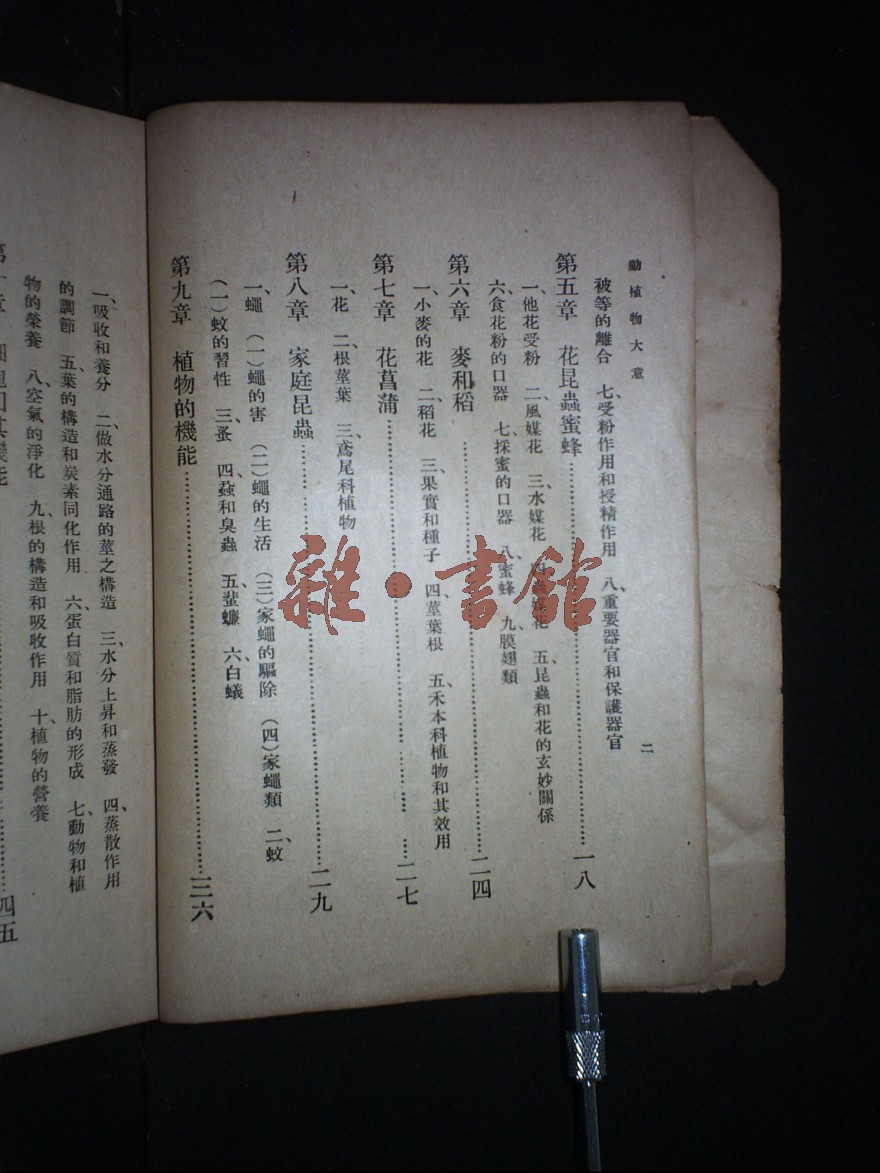 動植物大意
二
被等的離合 七、受粉作用和授精作用 八、重要器官和保護器官
第五章 花昆蟲蜜蜂……一八
一、他花受粉 二、風媒花 三、水媒花 四、蟲媒花 五、昆蟲和花的玄妙關係
六、食花粉的口器 七、採蜜的口器 八、蜜蜂 九、膜翅類
第六章 麥和稻……二四
一、小麥的花 二、稻花 三、果實和種子 四、莖葉根 五、禾本科植物和其效用
第七章 花菖蒲……二七
一、花 二、根莖葉 三、鳶尾科植物
第八章 家庭昆蟲……二九
一、蠅 (一)蠅的害 (二)蠅的生活 (三)家蠅的驅除 (四)家蠅類 二、蚊
(一)蚊的習性 三、蚤 四、蝨和臭蟲 五、蜚蠊 六、白蟻
第九章 植物的機能……三六
一、吸收和養分 二、做水分通路的莖之構造 三、水分上昇和蒸發 四、蒸散作用
的調節 五、葉的構造和炭素同化作用 六、蛋白質和脂肪的形成 七、動物和植
物的榮養 八、空氣的淨化 九、根的構造和吸收作用 十、植物的營養
四五
雜·書館